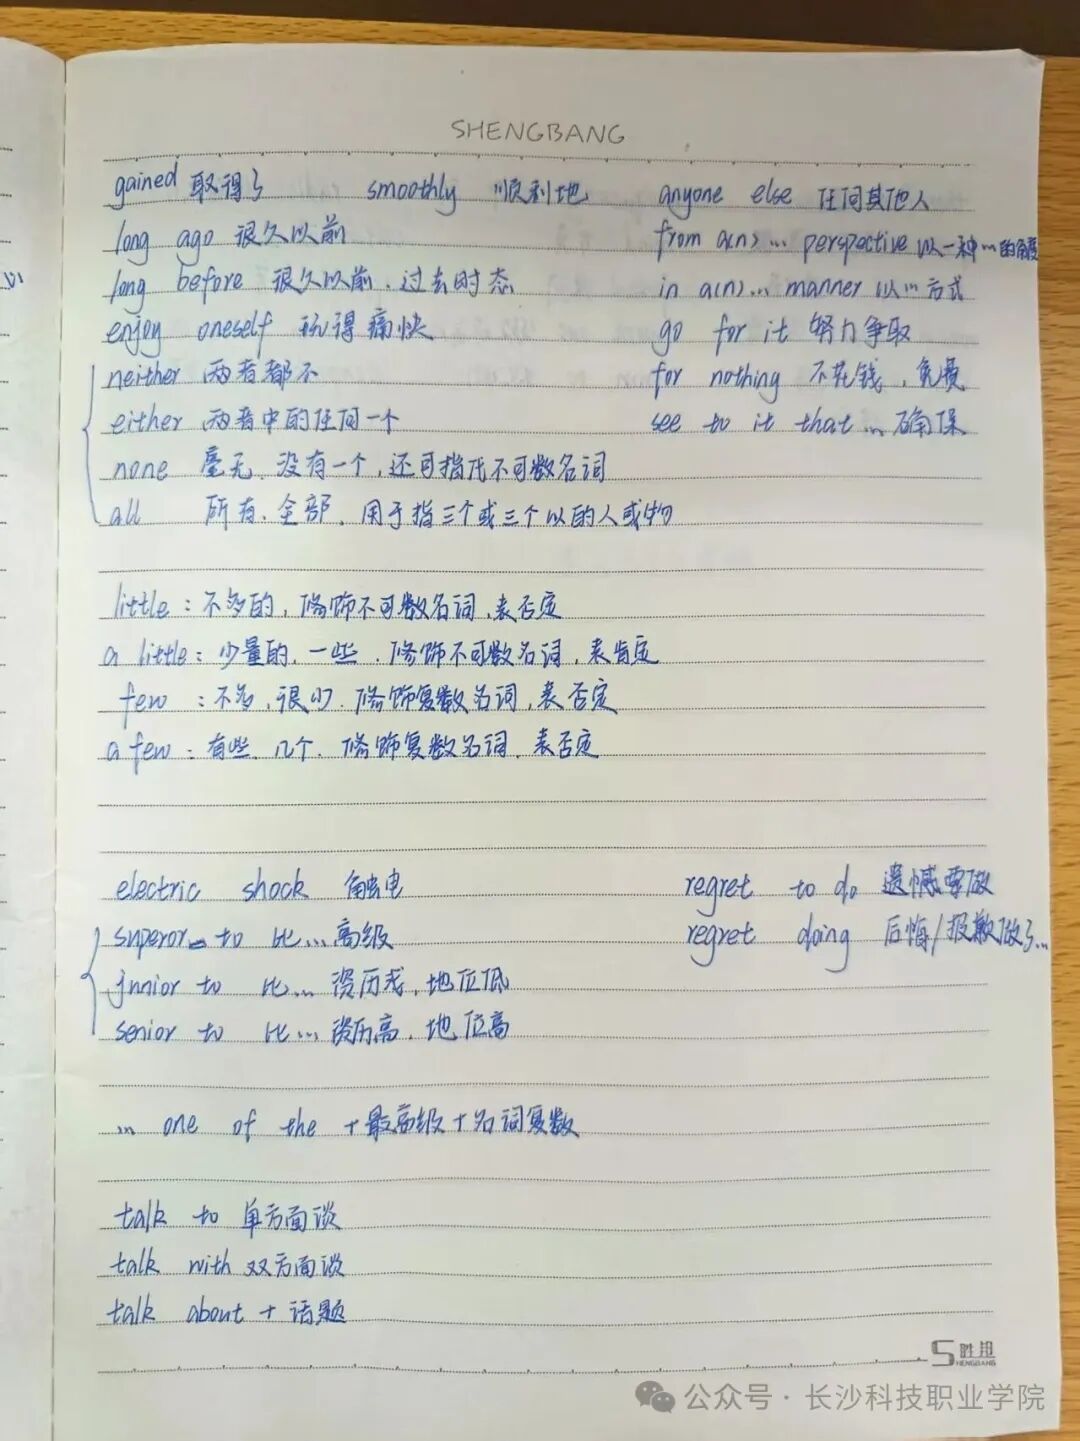 SHENGBANG
gained 取得了 smoothly 顺利地 anyone else 任何其他人
long ago 很久以前 from a(n) ... perspective 以一种...的角度
long before 很久以前、过去时态 in a(n) ... manner 以...方式
enjoy oneself 玩得痛快 go for it 努力争取
neither 两者都不 for nothing 不花钱、免费
either 两者中的任何一个 see to it that ... 确保
none 毫无、没有一个,还可指代不可数名词
all 所有、全部、用于指三个或三个以的人或物
little:不多的,修饰不可数名词、表否定
a little:少量的、一些、修饰不可数名词,表肯定
few :不多,很少、修饰复数名词,表否定
a few:有些、几个、修饰复数名词、表否定
electric shock 触电 regret to do 遗憾要做
superor to 比...高级 regret doing 后悔/报歉做了...
junior to 比... 资历浅,地位低
senior to 比... 资历高、地位高
... one of the +最高级+名词复数
talk to 单方面谈
talk with 双方面谈
talk about + 话题
胜邦
SHENGBANG
公众号·长沙科技职业学院